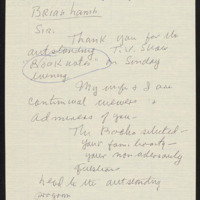 Brian Lamb
Sir:
Thank you for the
outstanding T.V. Show
"Book notes" on Sunday
evening.
My wife & I are
continual viewers &
admirers of you -
The Books selected -
your fam
your non adversarily
questions
lend to its outstanding
program